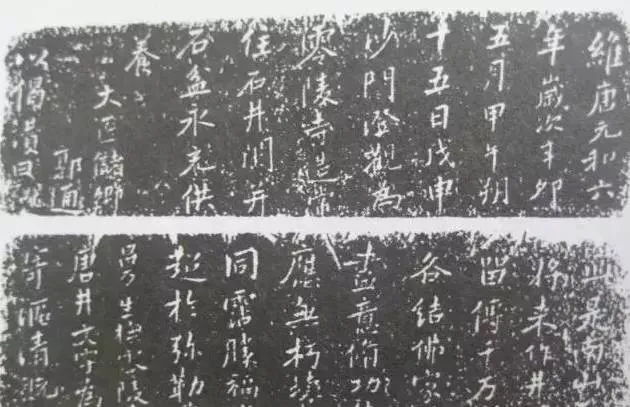 維唐元和六
年歲次辛卯
五月甲午朔
十五日戊申
沙門澄觀為
零陵寺造常
住石井闌并
石盆永充供
養
大匠儲卿
郭通
以偈讚曰
此是南山
將来作井
留傳千万
各結佛家
盡意修功
應無朽壞
同霑勝福
超於弥勒
生 零陵
唐井文字
清